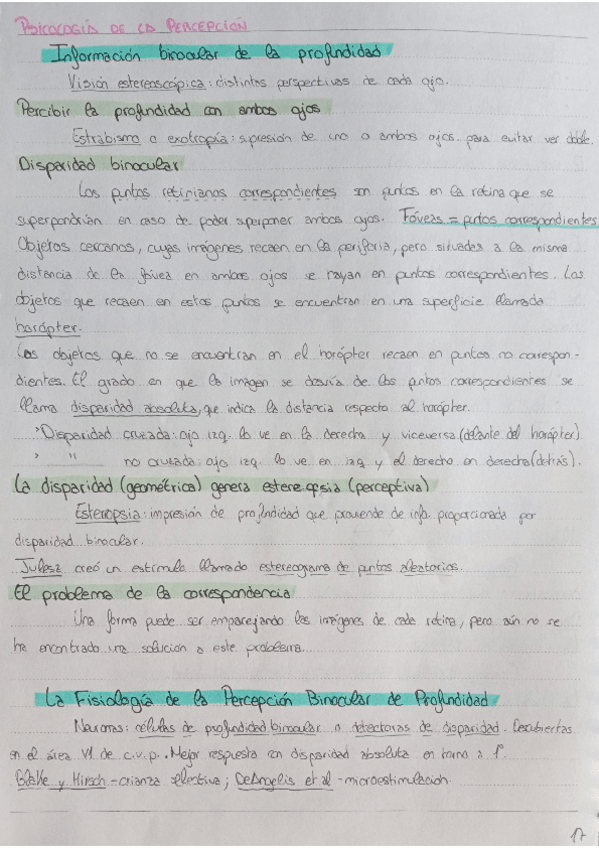 PSICOLOGÍA DE LA PERCEPCIÓN
Información binocular de la profundidad
Visión estereoscópica: distintas perspectivas de cada ojo.
Percibir la profundidad con ambos ojos
Estrabismo o exotropía: supresión de uno o ambos ojos para evitar ver doble.
Disparidad binocular
Los puntos retinianos correspondientes son puntos en la retina que se
superpondrían en caso de poder superponer ambos ojos. Fóveas = puntos correspondientes
Objetos cercanos, cuyas imágenes recaen en la periferia, pero situados a la misma
distancia de la fóvea en ambos ojos se hayan en puntos correspondientes. Los
objetos que recaen en estos puntos se encuentran en una superficie llamada
horópter.
Los objetos que no se encuentran en el horópter recaen en puntos no correspon-
dientes. El grado en que la imagen se desvía de los puntos correspondientes se
llama disparidad absoluta, que indica la distancia respecto al horópter.
Disparidad cruzada: ojo izq. lo ve en la derecha y viceversa (delante del horópter)
" no cruzada: ojo izq. lo ve en izq y el derecho en derecha (detrás).
La disparidad (geométrica) genera estereopsia (perceptiva)
Esteropsia: impresión de profundidad que proviende de info. proporcionada por
disparidad binocular.
Julesz creó un estímulo llamado estereograma de puntos aleatorios.
El problema de la correspondencia
Una forma puede ser emparejando las imágenes de cada retina, pero aún no se
ha encontrado una solución a este problema.
La Fisiología de la Percepción Binocular de Profundidad
Neuronas: células de profundidad binocular o detectoras de disparidad. Descubiertas
en el área V1 de c.v.p. Mejor respuesta con disparidad absoluta en torno a 1°.
Blake y Hirsch - crianza selectiva; DeAngelis et al - microestimulación.
17